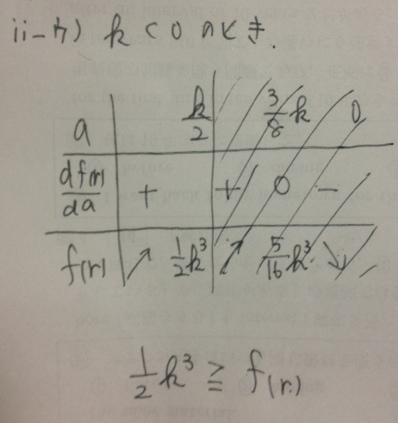 ii-ウ) k < 0 のとき.
a k/2 3/8 k 0
df(r)/da + + 0 −
f(r) ↗ 1/2 k³ ↗ 5/16 k³ ↘
1/2 k³ ≧ f(r)